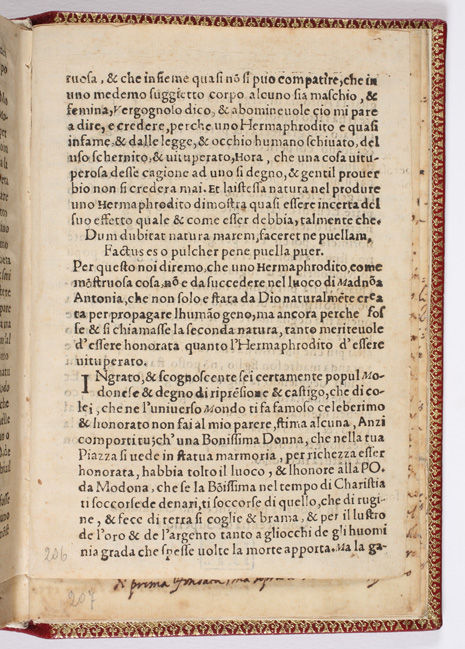 tuosa, & che insieme quasi nõ si puo compatire, che in
uno medemo suggietto corpo alcuno sia maschio, &
femina, Vergognolo dico, & abomineuole cio mi pare
a dire, e credere, perche uno Hermaphrodito e quasi
infame, & dalle legge, & occhio humano schiuato, del
uso schernito, & uituperato, Hora, che una cosa uitu-
perosa desse cagione ad uno si degno, & gentil prouer
bio non si credera mai. Et laistessa natura nel produre
uno Hermaphrodito dimostra quasi essere incerta del
suo effetto quale & come esser debbia, talmente che.
Dum dubitat natura marem, faceret ne puellam,
Factus es o pulcher pene puella puer.
Per questo noi diremo, che uno Hermaphrodito, come
mõstruosa cosa, nõ e da succedere nel luoco di Madõna
Antonia, che non solo e stata da Dio naturalmẽte crea
ta per propagare lhumão geno, ma ancora perche fos
se & si chiamasse la seconda natura, tanto meriteuole
d'essere honorata quanto l'Hermaphrodito d'essere
uituperato.
INgrato, & scognoscente sei certamente popul Mo-
donese & degno di riprẽsione & castigo, che di co-
lei, che ne l'uniuerso Mondo ti fa famoso celeberimo
& honorato non fai al mio parere, stima alcuna, Anzi
comporti tu, ch' una Bonissima Donna, che nella tua
Piazza si uede in statua marmoria, per richezza esser
honorata, habbia tolto il luoco, & lhonore alla PO.
da Modona, che se la Bõissima nel tempo di Charistia
ti soccorse de denari, ti soccorse di quello, che di rugi-
ne, & fece di terra si coglie & brama, & per il lustro
de l'oro & de l'argento tanto a gliocchi de gli huomi
nia grada che spesse uolte la morte apporta. Ma la ga-
206
& prima
207